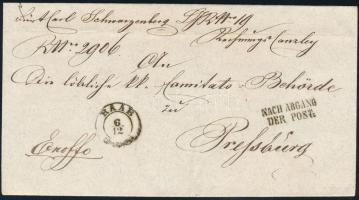 Fürst Carl Schwarzenberg
Rechnungs Canzley
No 2906.
An
Die löbliche kk. Comitats-Behörde
zu
RAAB
6
12
NACH ABGANG
DER POST.
Exoffo
Pressburg